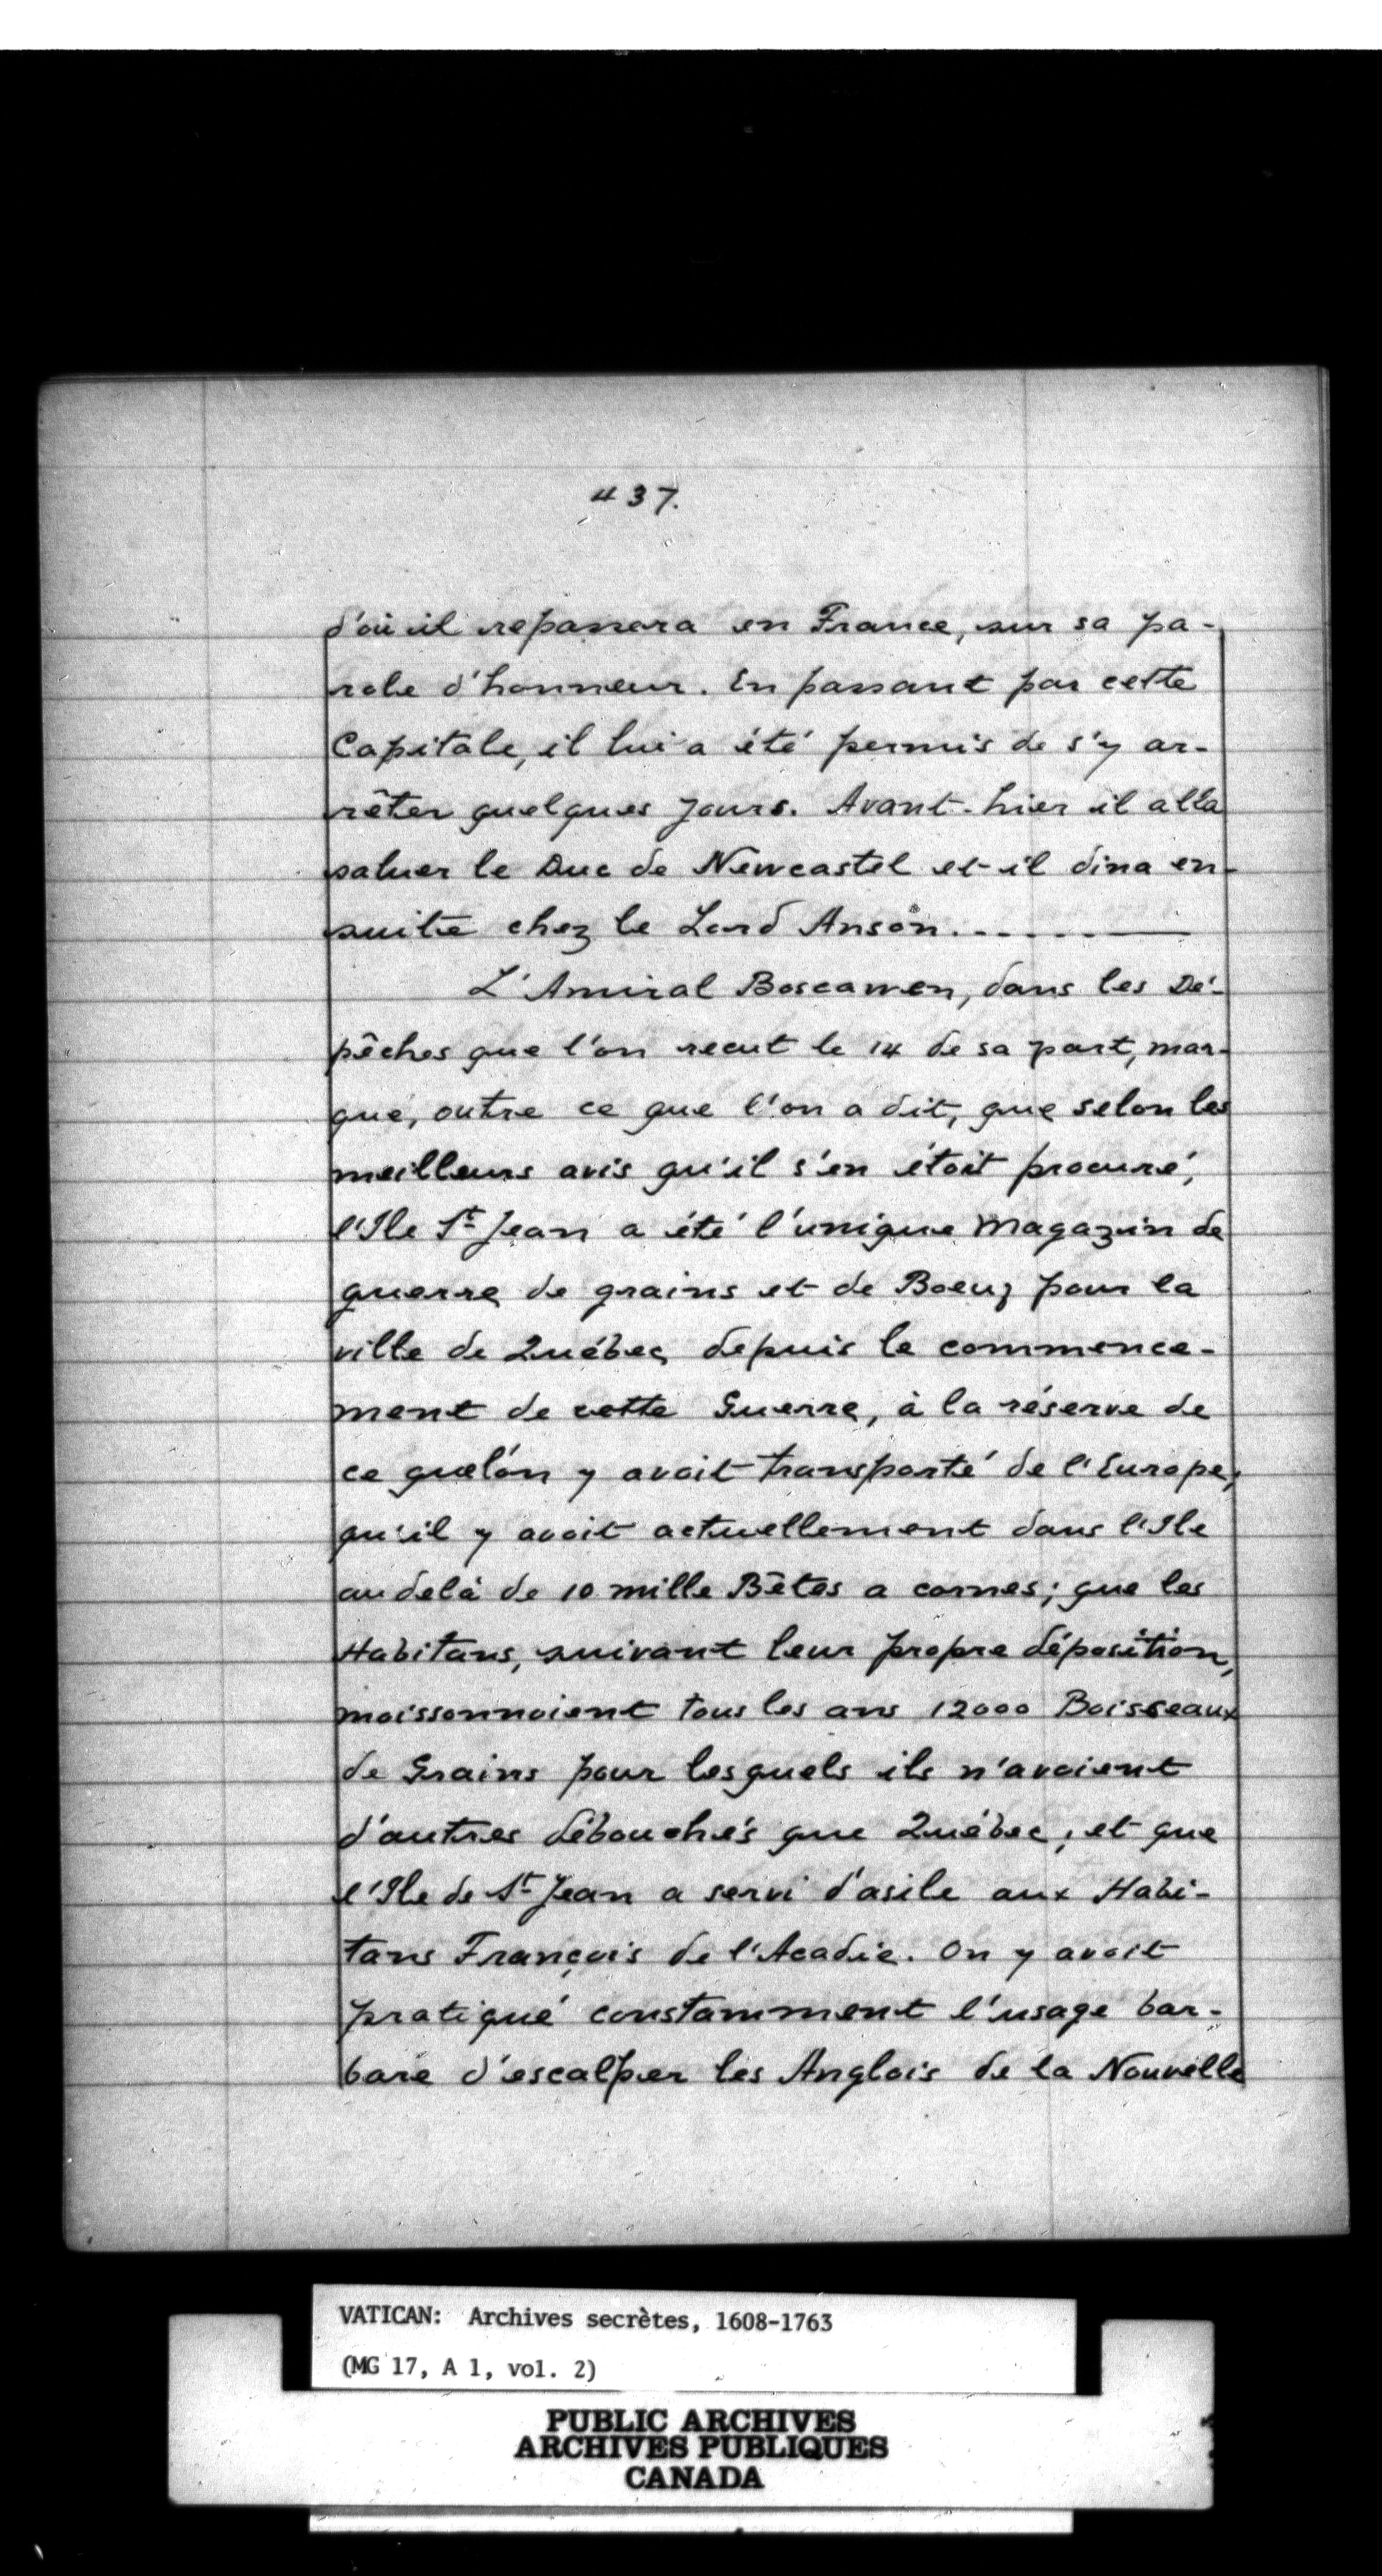 437.
d'où il repassera en France, sur sa pa-
role d'honneur. En passant par cette
Capitale, il lui a été permis de s'y ar-
rêter quelques jours. Avant-hier il alla
saluer le Duc de Newcastel et il dina en-
suite chez le Lord Anson.
L'Amiral Boscawen, dans les Dé-
pêches que l'on recut le 14 de sa part, mar-
que, outre ce que l'on a dit, que selon les
meilleurs avis qu'il s'en étoit procuré,
l'Ile St Jean a été l'unique Magazin de
guerre de grains et de Boeuf pour la
ville de Québec depuis le commence-
ment de cette Guerre, à la réserve de
ce quel'on y avait transporté de l'Europe;
qu'il y avoit actuellement dans l'Ile
au delà de 10 mille Bêtes a cornes; que les
Habitans, suivant leur propre déposition,
moissonnoient tous les ans 12000 Boisseaux
de Grains pour lesquels ils n'avoient
d'autres débouchés que Québec, et que
l'Ile de St Jean a servi d'asile aux Habi-
tans François de l'Acadie. On y avoit
pratiqué constamment l'usage bar-
bare d'escalper les Anglois de la Nouvelle
VATICAN: Archives secrètes, 1608-1763
(MG 17, A 1, vol. 2)
PUBLIC ARCHIVES
ARCHIVES PUBLIQUES
CANADA